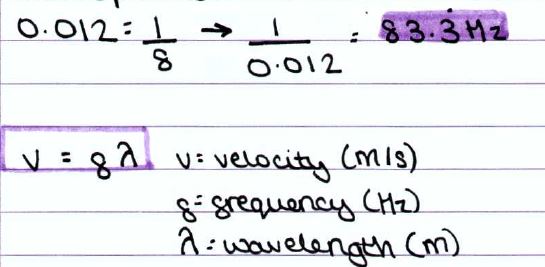 0.012 = 1/f → 1/0.012 = 83.3̇ Hz
v = fλ v = velocity (m/s)
f = frequency (Hz)
λ = wavelength (m)